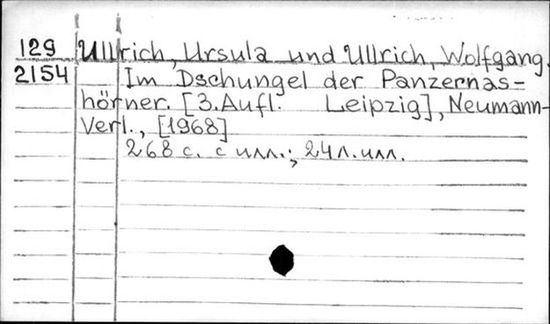 129 Ullrich, Ursula und Ullrich, Wolfgang.
2154 Im Dschungel der Panzernas=
hörner. [3. Aufl. Leipzig], Neumann-
Verl., [1968]
268 с. с илл.; 24 л. илл.